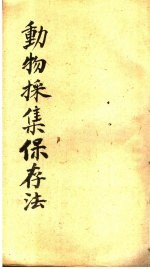 動物採集保存法